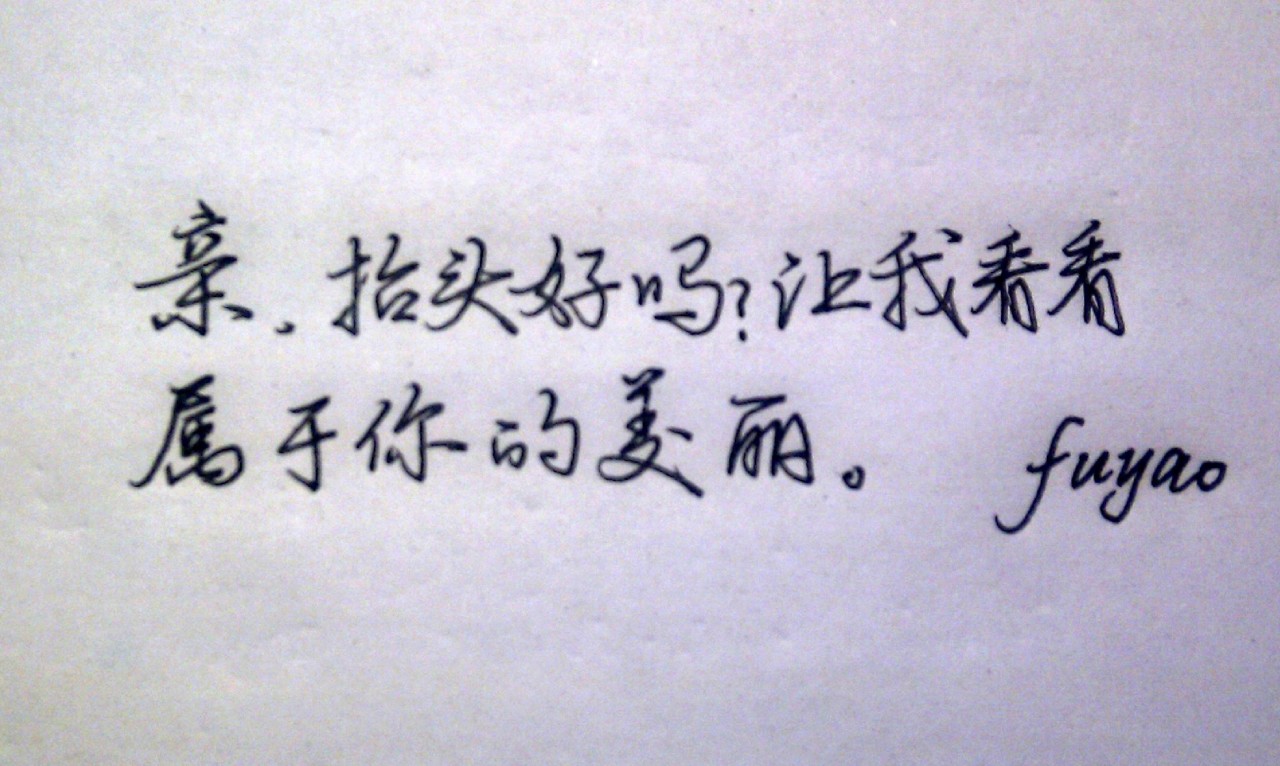 亲，抬头好吗？让我看看
属于你的美丽。 fuyao